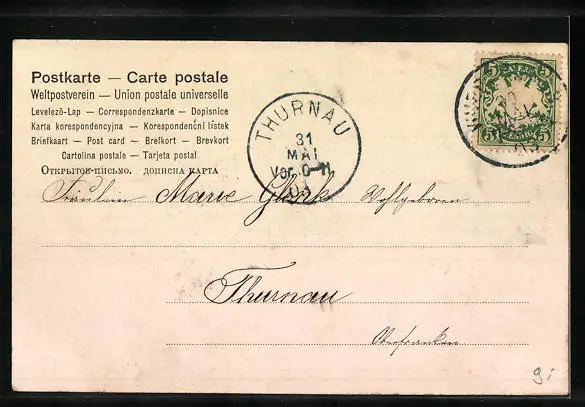 Postkarte — Carte postale
Weltpostverein — Union postale universelle
Levelezö-Lap — Correspondenzkarte — Dopisnice
Karta korespondencyjna — Korespondenční lístek
Briefkaart — Post card — Brefkort — Brevkort
Cartolina postale — Tarjeta postal
Открытое-письмо. дописна карта
THURNAU
31
MAI
Vor. 0-11
03
5 5
5 5
Fräulein Marie Wohlgeboren
Thurnau
Oberfranken